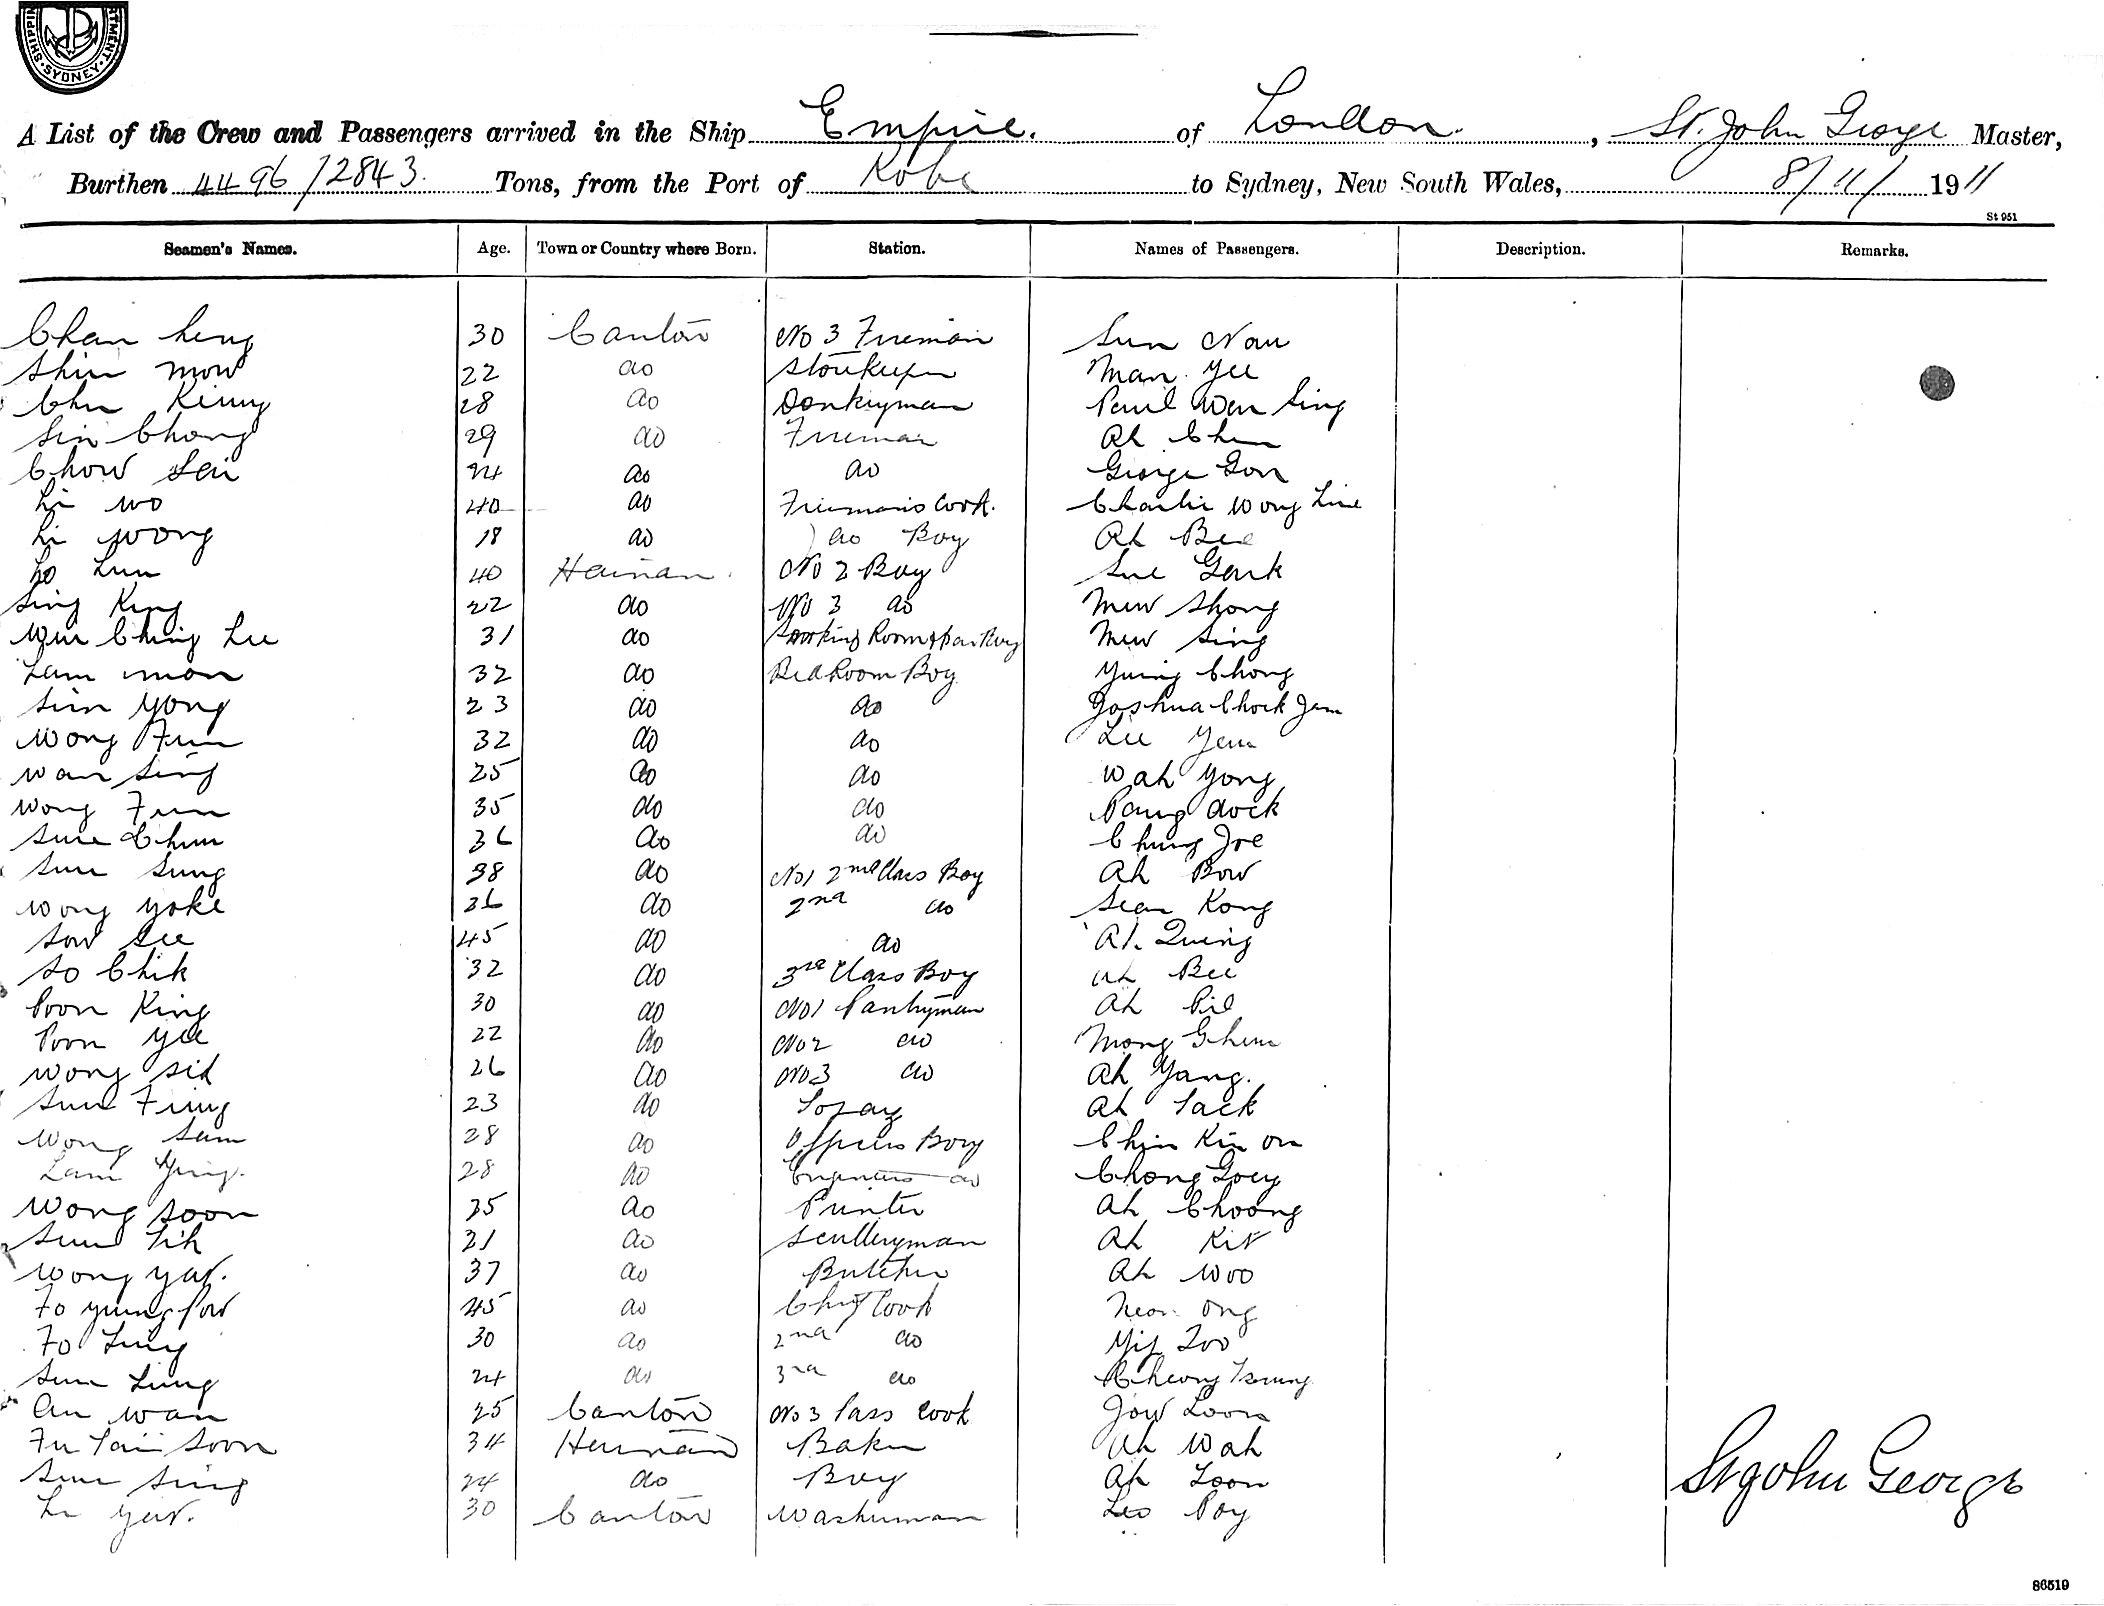 SHIPPING DEPARTMENT. SYDNEY.
A List of the Crew and Passengers arrived in the Ship Empire. of London, St. John George Master,
Burthen 4496/2843. Tons, from the Port of Kobe to Sydney, New South Wales, 8/11/1911
St 951
Seamen's Names. Age. Town or Country where Born. Station. Names of Passengers. Description. Remarks.
Chan heng 30 Canton No 3 Fireman Sun Nau
Shin mow 22 do Storekeeper Man Yee
Chu Keung 28 do Donkeyman Paul Wen Sing
Sin Chong 29 do Fireman Ah Chun
Chow Sei 24 do do George Gon
Li wo 40 do Firemans Cook. Charlie Wong Line
Li wong 18 do do Boy Ah Bee
Lo Lun 40 Hainan. No 2 Boy Sue Gark
Sing King 22 do No 3 do Mew Shong
Wun Ching Lee 31 do Smoking Room & bar Boy Mew Sing
Lam mon 32 do Bed Room Boy Yuing Chong
Sim Yong 23 do do Joshua Chock Jem
Wong Fun 32 do do Lee Yem
Wan Sing 25 do do Wah Yong
Wong Fun 35 do do Pang dock
Sun Chun 36 do do Chung Joe
Sun Sung 38 do No 1 2nd Class Boy Ah Bow
Wong Yoke 36 do 2nd do Sean Kong
Sow See 45 do do Ah Quing
So Chik 32 do 3rd Class Boy Ah Bee
Poon King 30 do No 1 Pantryman Ah Pil
Poon Yee 22 do No 2 do Mong Ghem
Wong Sik 26 do No 3 do Ah Yang.
Sun Fung 23 do Topay Ah Tack
Wong Sam 28 do Officers Boy Chin Kin on
Lam Ying. 28 do Engineers do Chong Goey
Wong Soon 35 do Printer Ah Choong
Sun Tik 21 do Sculleryman Ah Kit
Wong Yat. 37 do Butcher Ah Woo
Fo Yung Pow 45 do Chief Cook Neon Ong
Fo Ling 30 do 2nd do Yip Too
Sun Lung 24 do 3rd do Cheong Tseung
Au Wan 25 Canton No 3 Pass Cook Jow Loon
Fu Tai Soon 34 Hainan Baker Ah Wah
Sun Sing 24 do Boy Ah Loon
Li Yat. 30 Canton Washman Leo Poy
St John George
86519